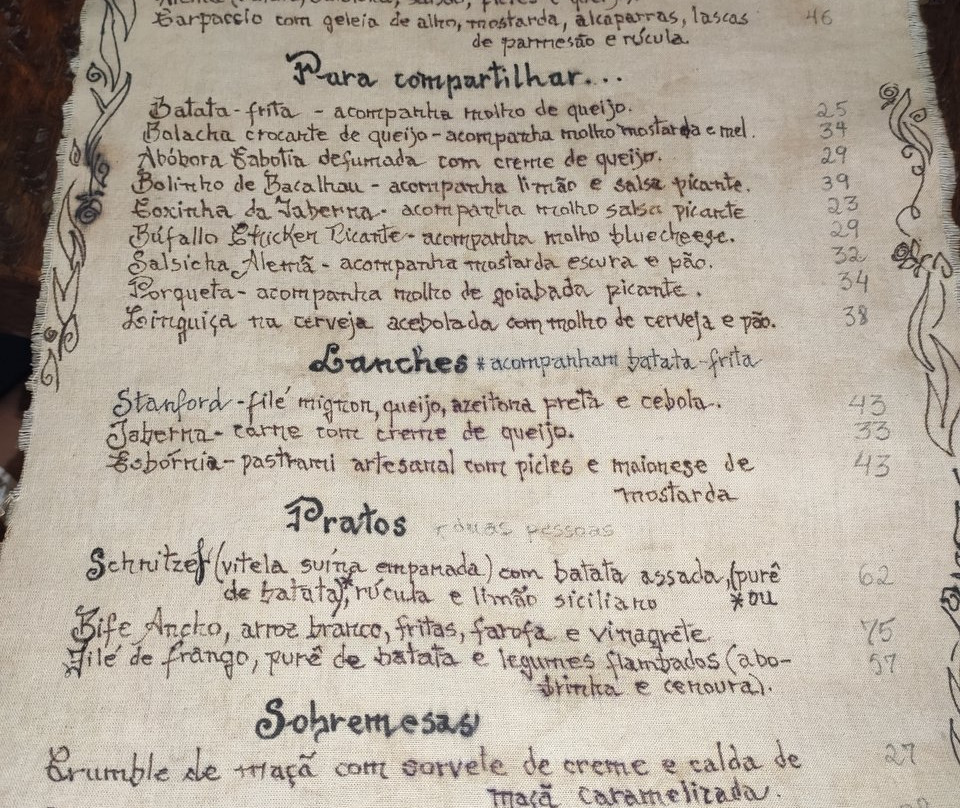 Carpaccio com geleia de alho, mostarda, alcaparras, lascas 46
de parmesão e rúcula
Para compartilhar...
Batata-frita - acompanha molho de queijo. 25
Bolacha crocante de queijo - acompanha molho mostarda e mel. 34
Abóbora Cabotia defumada com creme de queijo. 29
Bolinho de Bacalhau - acompanha limão e salsa picante. 39
Coxinha da Taberna - acompanha molho salsa picante 23
Búfallo Chicken Picante - acompanha molho bluecheese. 29
Salsicha Alemã - acompanha mostarda escura e pão. 32
Porqueta - acompanha molho de goiabada picante. 34
Linguiça na cerveja acebolada com molho de cerveja e pão. 38
Lanches * acompanham batata-frita
Stanford - filé mignon, queijo, azeitona preta e cebola. 43
Taberna - carne com creme de queijo. 33
Esbórnia - pastrami artesanal com picles e maionese de 43
mostarda
Pratos * duas pessoas
Schnitzel (vitela suína empanada) com batata assada, (purê 62
de batata)*, rúcula e limão siciliano *ou
Bife Ancho, arroz branco, fritas, farofa e vinagrete 75
Filé de frango, purê de batata e legumes flambados (abo- 57
brinha e cenoura).
Sobremesas
Crumble de maçã com sorvete de creme e calda de 27
maçã caramelizada.